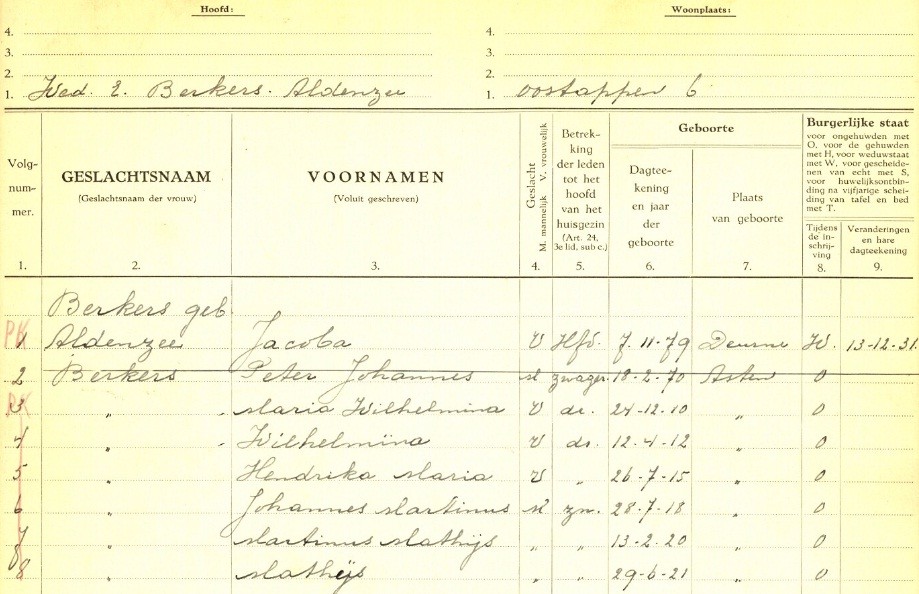 Hoofd: Woonplaats:
4. 4.
3. 3.
2. 2.
1. Wed. L. Berkers. Aldenzee 1. Oostappen 6
Volg-
num-
mer.
1.
GESLACHTSNAAM
(Geslachtsnaam der vrouw)
2.
VOORNAMEN
(Voluit geschreven)
3.
Geslacht
M. mannelijk V. vrouwelijk
4.
Betrek-
king
der leden
tot het
hoofd
van het
huisgezin
(Art. 24,
3e lid, sub c.)
5.
Geboorte
Dagtee-
kening
en jaar
der
geboorte
6.
Plaats
van geboorte
7.
Burgerlijke staat
voor ongehuwden met
O, voor de gehuwden
met H, voor weduwstaat
met W, voor gescheide-
nen van echt met S,
voor huwelijksontbin-
ding na vijfjarige schei-
ding van tafel en bed
met T.
Tijdens
de in-
schrij-
ving
8.
Veranderingen
en hare
dagteekening
9.
Berkers geb
PK
1 Aldenzee Jacoba V Hfd. 7-11-79 Deurne W. 13-12-31.
2 Berkers Peter Johannes M zwager 18-2-70 Asten O
PK
3 „ Maria Wilhelmina V dr. 24-12-10 „ O
4 „ Wilhelmina V dr. 12-4-12 „ O
5 „ Hendrika Maria V „ 26-7-15 „ O
6 „ Johannes Martinus M zn. 28-7-18 „ O
7 „ Martinus Mathijs „ „ 13-2-20 „ O
8 „ Mathijs „ „ 29-6-21 „ O